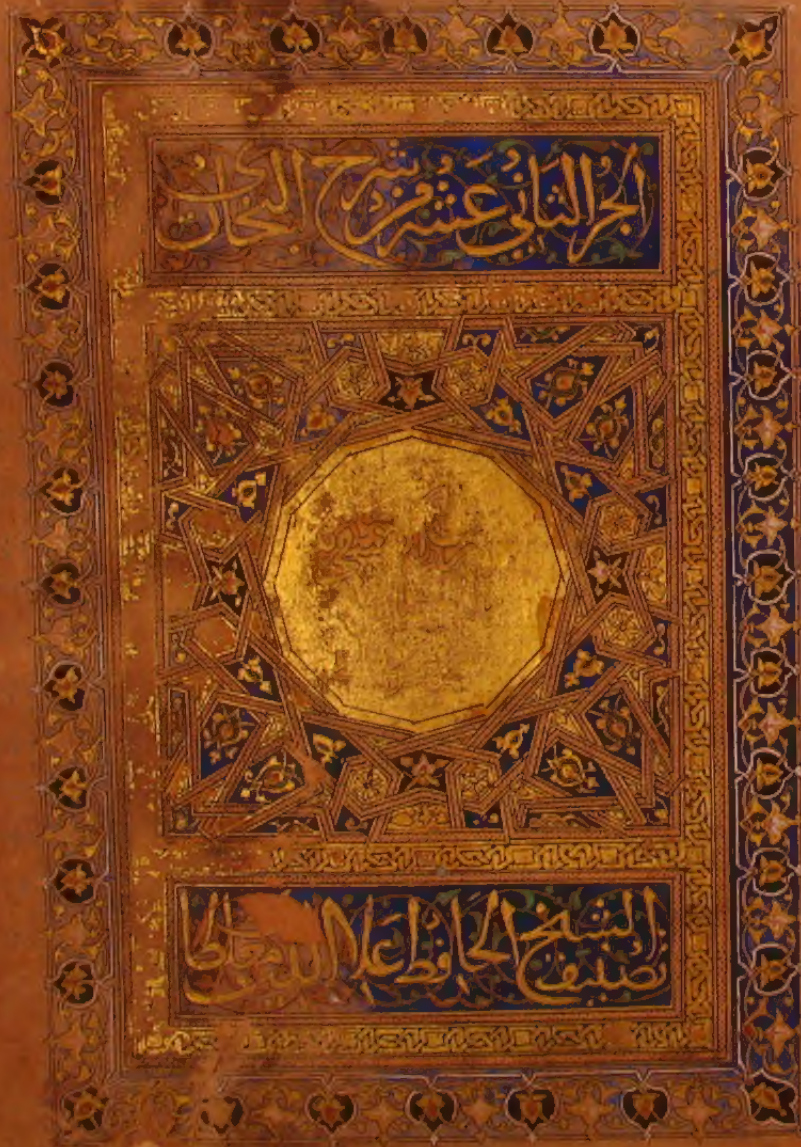 الجُزُ الثَانِى عَشَر مِن شَرح البُخَارى
تصنيف الشيخ الحَافِظ عَلاء الدين مغلطاى